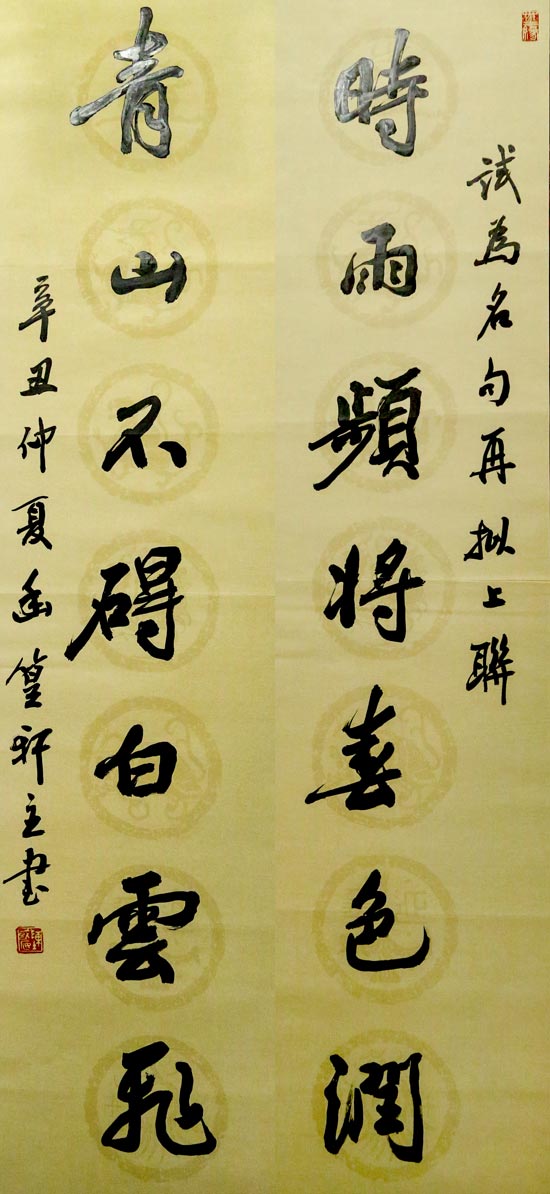 試為名句再擬上聯
時雨頻將春色潤
青山不碍白雲飛
辛丑仲夏幽篁軒主書